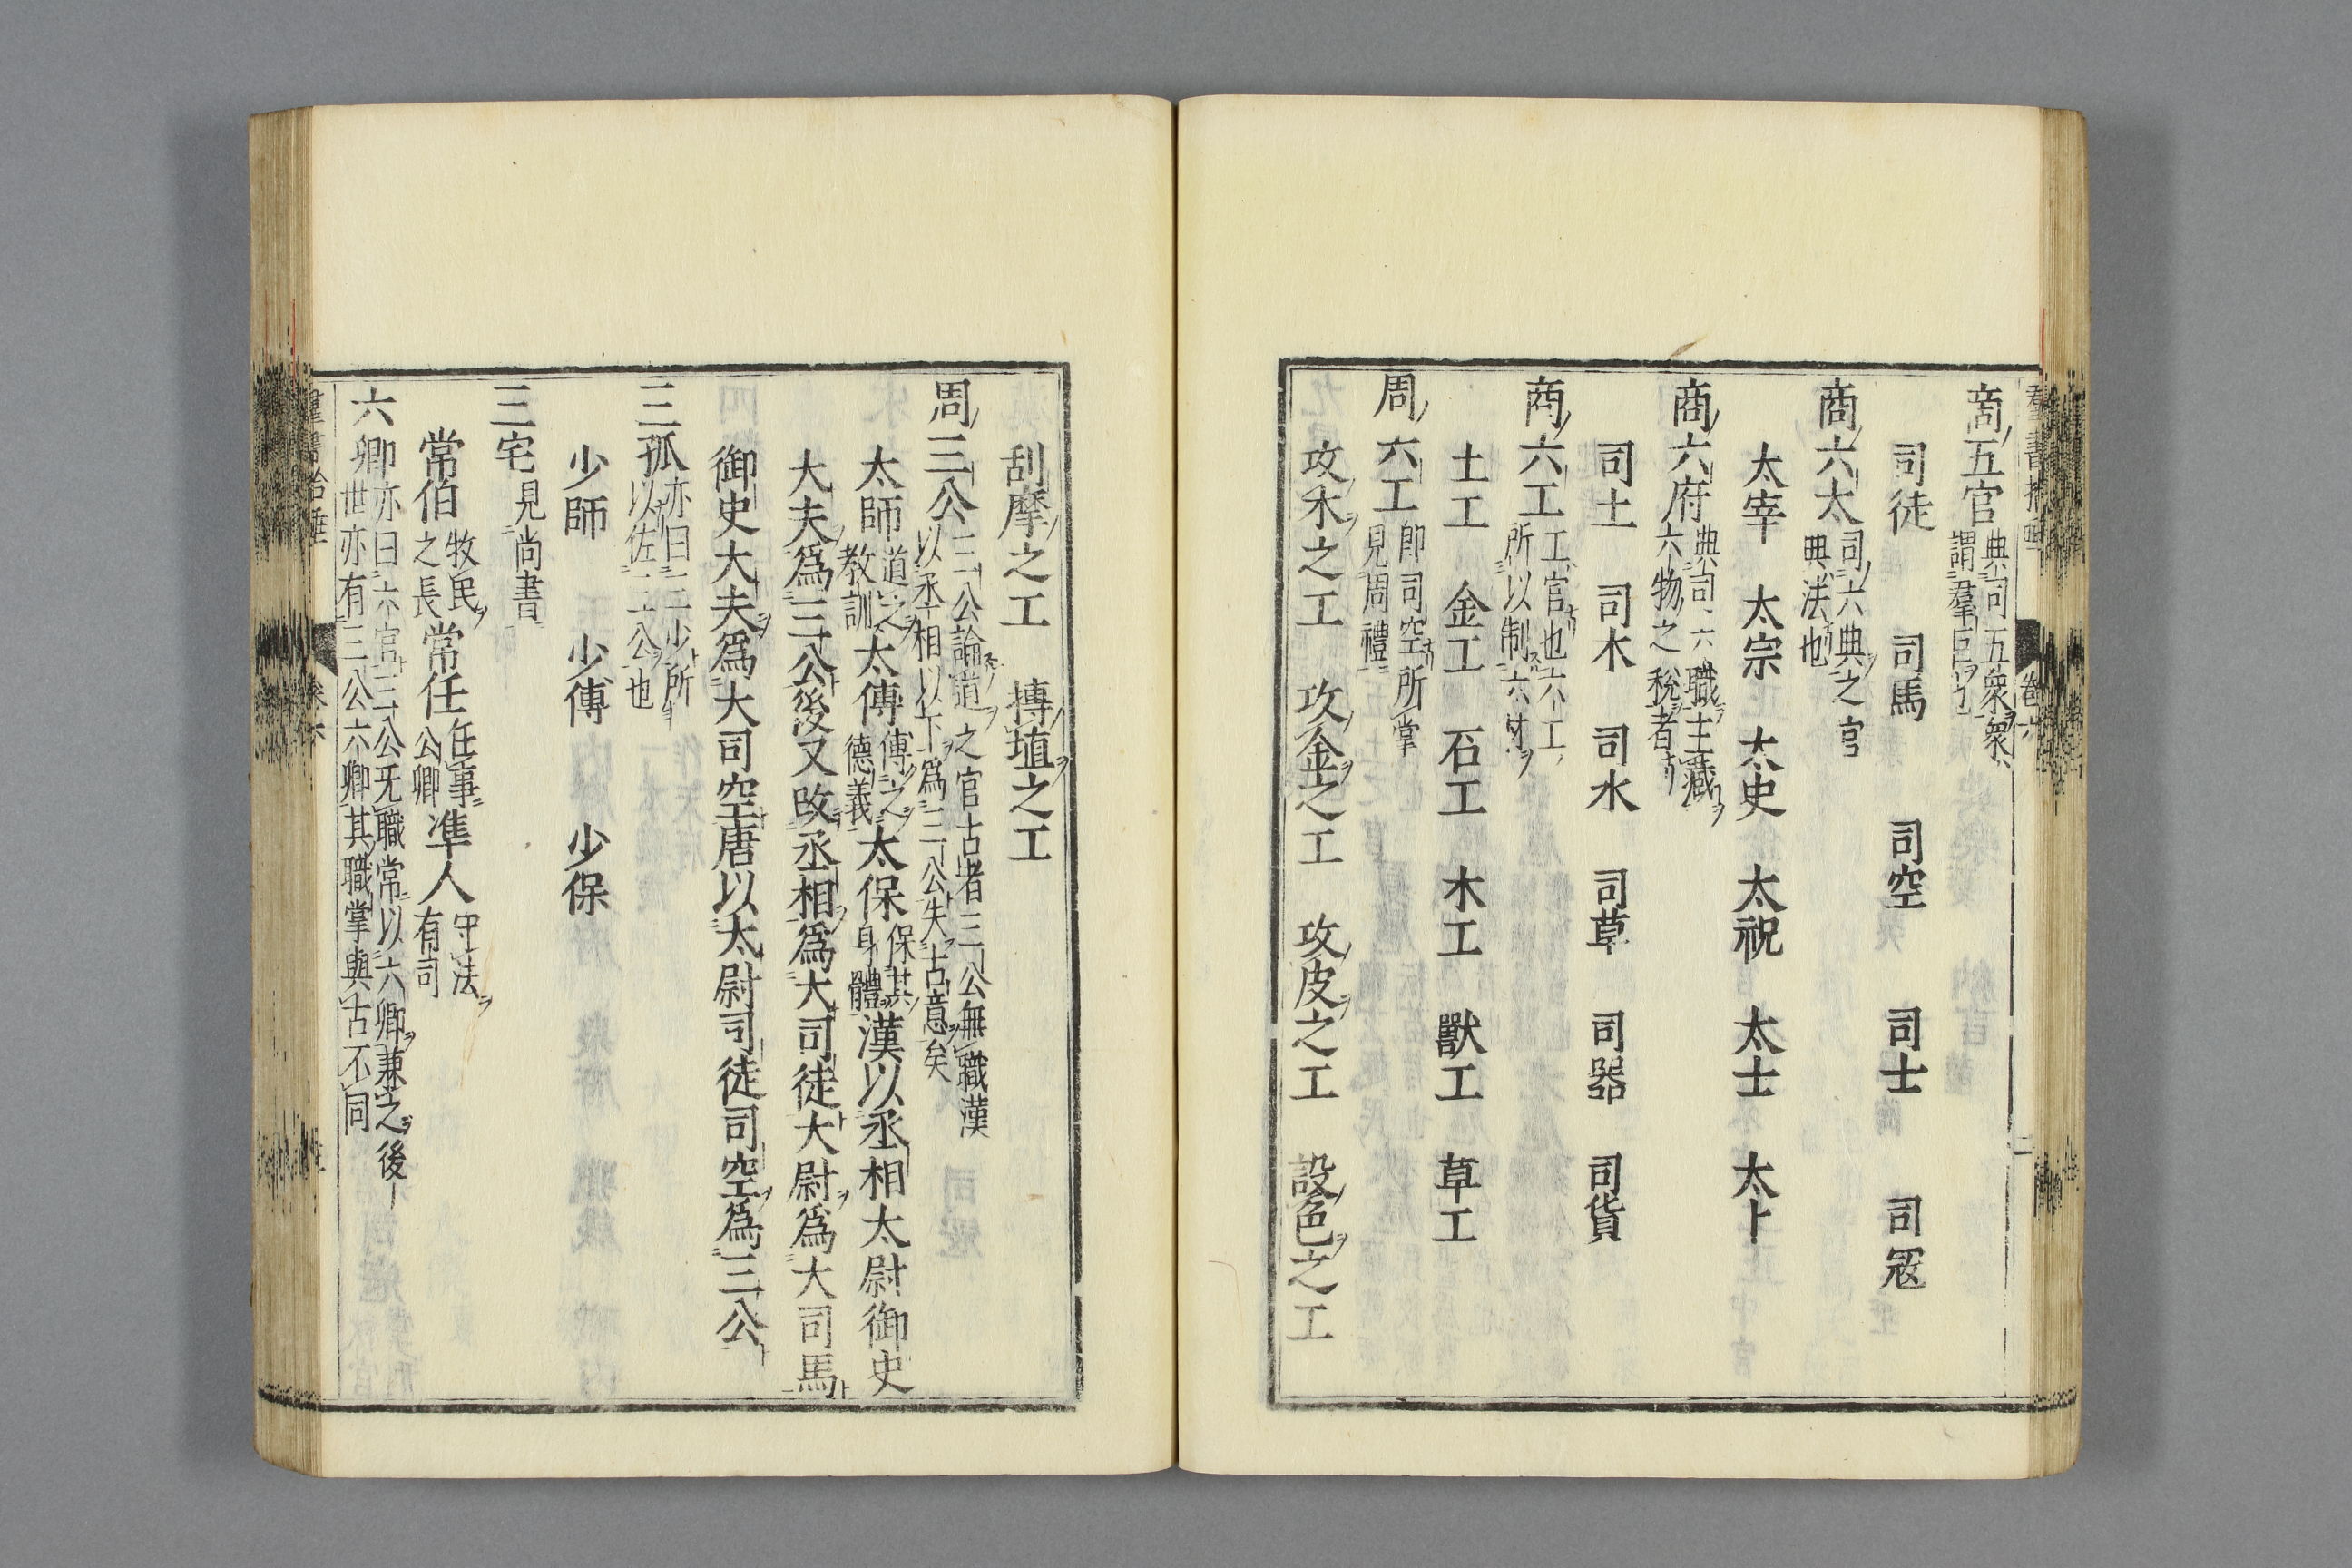 商五官典司五衆衆
謂羣臣也
司徒 司馬 司空 司士 司冦
商六太司六典之官
典法也
太宰 太宗 太史 太祝 太士 太卜
商六府典司六職主藏
六物之稅者
司土 司木 司水 司草 司器 司貨
商六工工官也六工
所以制六材
土工 金工 石工 木工 獸工 草工
周六工卽司空所掌
見周禮
攻木之工 攻金之工 攻皮之工 設色之工
刮摩之工 摶埴之工
周三公三公論道之官古者三公無職漢
以丞相以下爲三公失古意矣
太師道之教訓太傅傅之德義太保保其身體漢以丞相太尉御史
大夫爲三公後又改丞相爲大司徒大尉爲大司馬
御史大夫爲大司空唐以太尉司徒司空爲三公
三孤亦曰三少所
以佐三公也
少師 少傅 少保
三宅見尚書
常伯牧民之長常任任事公卿準人守法有司
六卿亦曰六官三公無職常以六卿兼之後
世亦有三公六卿其職掌與古不同
羣書拾唾 卷六